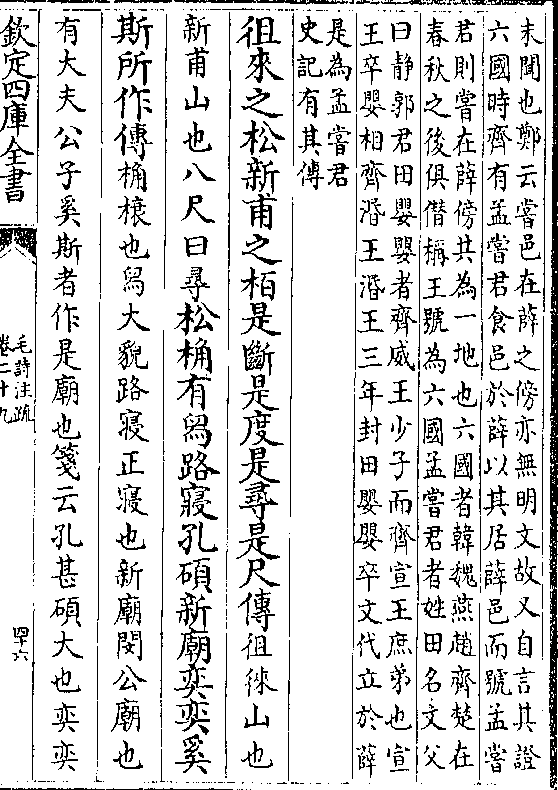 未聞也鄭云嘗邑在薛之傍亦無明文故又自言其證
六國時齊有孟嘗君食邑於薛以其居薛邑而號孟嘗
君則嘗在薛傍共為一地也六國者韓魏燕趙齊楚在
春秋之後俱僭稱王號為六國孟嘗君者姓田名文父
曰静郭君田嬰嬰者齊威王少子而齊宣王庶弟也宣
王卒嬰相齊湣王湣王三年封田嬰嬰卒文代立於薛
是為孟嘗君
史記有其傳
徂來之松新甫之柏是斷是度是尋是尺傳徂徠山也
新甫山也八尺曰尋松桷有舄路寢孔碩新廟奕奕奚
斯所作傳桷榱也舄大貌路寢正寢也新廟閔公廟也
有大夫公子奚斯者作是廟也箋云孔甚碩大也奕奕
欽定四庫全書
毛詩注疏
卷二十九
四十六